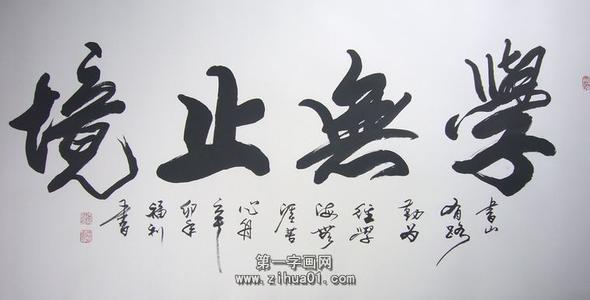 學無止境
書山
有路
勤為
徑學
海無
涯苦
心舟
辛
卯年
福利
書
第一字画网
www.zihua01.com